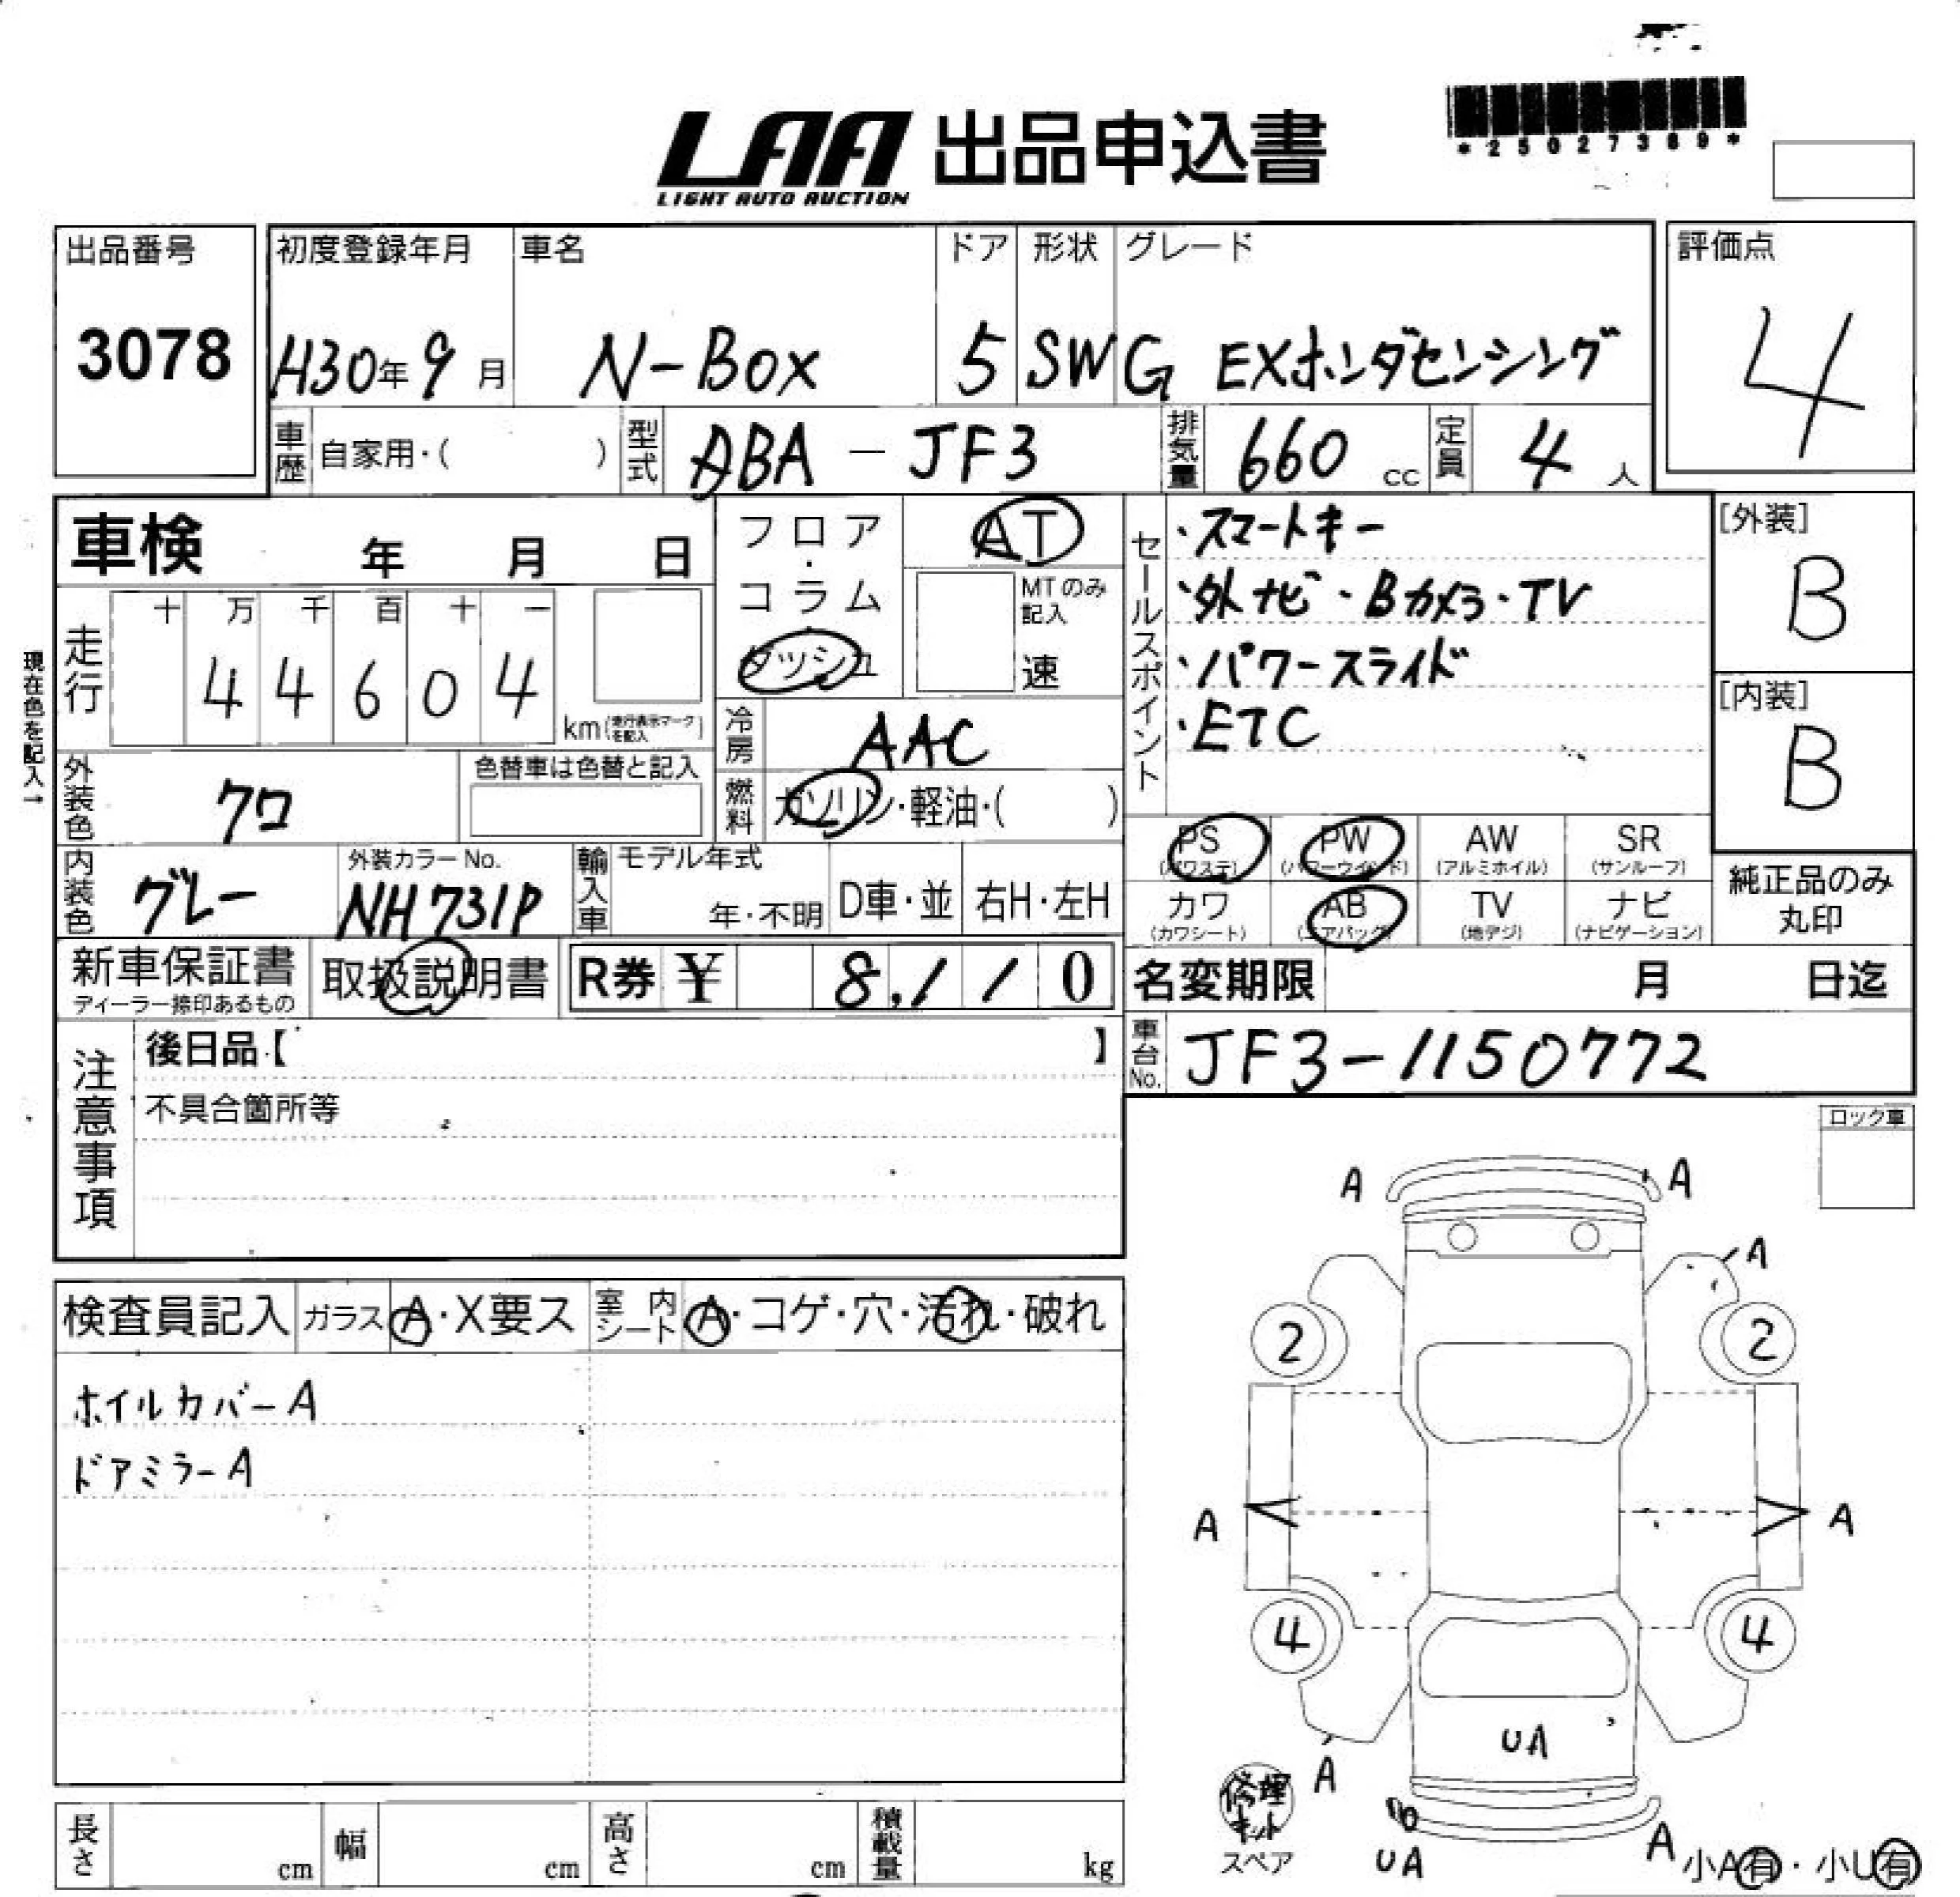 *25027389*
LAA 出品申込書
LIGHT AUTO AUCTION
出品番号
3078
初度登録年月
H30年9月
車名
N-Box
ドア
5
形状
SW
グレード
G EXホンダセンシング
評価点
4
車歴 自家用・( )
型式 ABA-JF3
排気量 660 cc
定員 4 人
車検 年 月 日
フロア・コラム
ダッシュ
AT
MTのみ記入
速
セールスポイント
・スマートキー
・外ナビ・Bカメラ・TV
・パワースライド
・ETC
[外装]
B
[内装]
B
現在色を記入→
走行
十 万 千 百 十 一
4 4 6 0 4
km(走行表示マークを記入)
冷房 AAC
外装色 クロ
色替車は色替と記入
燃料 ガソリン・軽油・( )
PS (パワステ)
PW (パワーウインド)
AW (アルミホイル)
SR (サンルーフ)
カワ (カワシート)
AB (エアバック)
TV (地デジ)
ナビ (ナビゲーション)
純正品のみ丸印
内装色 グレー
外装カラーNo.
NH731P
輸入車 モデル年式
年・不明
D車・並
右H・左H
新車保証書
ディーラー捺印あるもの
取扱説明書
R券 ¥ 8,110
名変期限 月 日迄
車台No. JF3-1150772
注意事項
後日品【 】
不具合箇所等
ロック車
検査員記入
ガラス A・X要ス
室内シート A・コゲ・穴・汚れ・破れ
ホイルカバーA
ドアミラーA
A A
A
2 2
A A
4 4
UA
A
修理キット
スペア
UA
A
小A有・小U有
長さ cm
幅 cm
高さ cm
積載量 kg